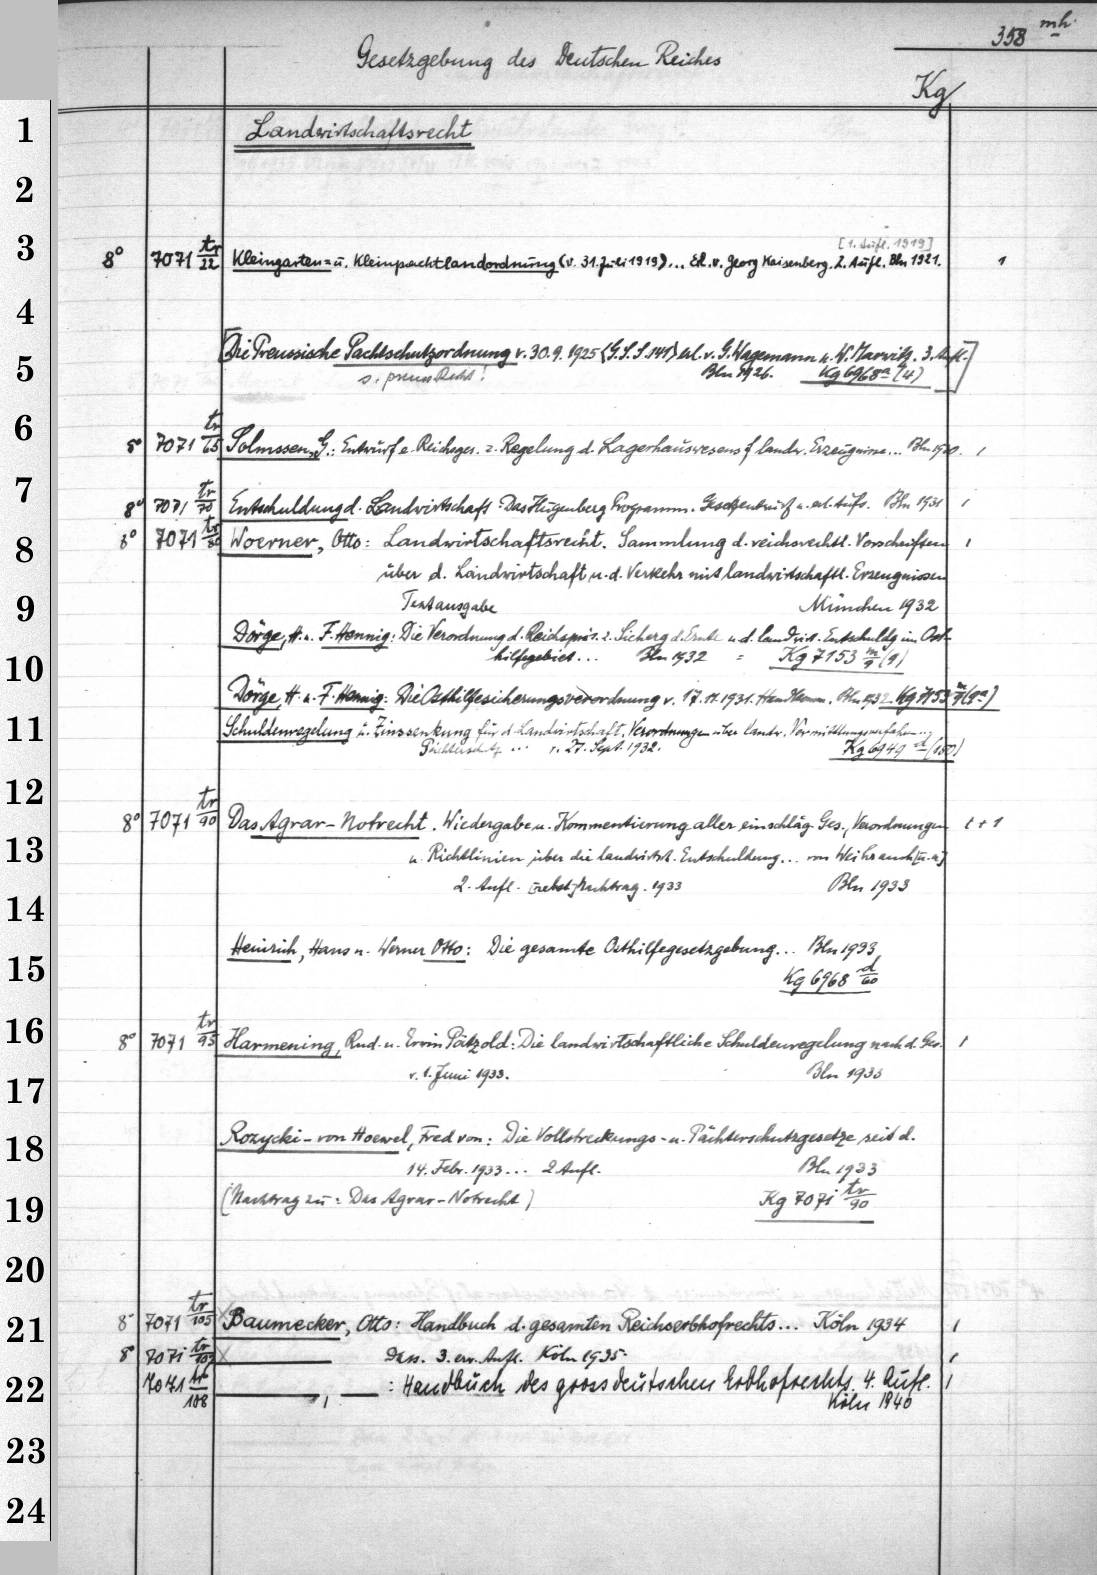 358 mh.
Gesetzgebung des Deutschen Reiches
Kg
1 Landwirtschaftsrecht
2
[1. Aufl. 1919]
3 8° 7071 tr/22 Kleingarten= u. Kleinpachtlandordnung (v. 31. Juli 1919)... Erl. v. Georg Kaisenberg. 2. Aufl. Bln 1921. 1
4
[Die Preussische Pachtschutzordnung v. 30.9.1925 (G.S.S. 141) erl. v. G. Wagemann u. W. Marwitz. 3. Aufl.
5 s. preuss Recht! Bln 1926. Kg 6968 a (4)]
6 8° 7071 tr/65 Solmssen, G.: Entwurf e. Reichsges. z. Regelung d. Lagerhauswesens f. landw. Erzeugnisse... Bln 1930. 1
7 8° 7071 tr/70 Entschuldung d. Landwirtschaft. Das Hugenberg Programm. Gesetzentwurf u. erl. Aufs. Bln 1931 1
8 8° 7071 tr/80 Woerner, Otto: Landwirtschaftsrecht. Sammlung d. reichsrechtl. Vorschriften 1
über d. Landwirtschaft u. d. Verkehr mit landwirtschaftl. Erzeugnissen
9 Textausgabe München 1932
Dörge, H. u. F. Hennig: Die Verordnung d. Reichspräs. z. Sicherg d. Ernte u. d. landwirt. Entschuldg im Ost-
10 hilfegebiet... Bln 1932 = Kg 7153 m/9 (9)
Dörge, H. u. F. Hennig: Die Osthilfesicherungsverordnung v. 17.11.1931. Bln 1932. Kg 7153 m/9 (9a)
11 Schuldenregelung u. Zinssenkung für d. Landwirtschaft. Verordnungen über landw. Vermittlungsverfahren...
... v. 27. Sept. 1932. Kg 6949 d (150)
12
8° 7071 tr/90 Das Agrar-Notrecht. Wiedergabe u. Kommentierung aller einschläg. Ges., Verordnungen 1+1
13 u. Richtlinien über die landwirt. Entschuldung... von Weihrauch [u.a.]
2. Aufl. [nebst] Nachtrag. 1933 Bln 1933
14
Heinrich, Hans u. Werner Otto: Die gesamte Osthilfegesetzgebung... Bln 1933
15 Kg 6968 d/60
16 8° 7071 tr/95 Harmening, Rud. u. Erwin Pätzold: Die landwirtschaftliche Schuldenregelung nach d. Ges. 1
17 v. 1. Juni 1933. Bln 1933
18 Rozycki-von Hoewel, Fred von: Die Vollstreckungs- u. Pächterschutzgesetze seit d.
14. Febr. 1933... 2 Aufl. Bln 1933
19 (Nachtrag zu: Das Agrar-Notrecht) Kg 7071 tr/90
20
21 8° 7071 tr/105 Baumecker, Otto: Handbuch d. gesamten Reichserbhofrechts... Köln 1934 1
8° 7071 tr/107 Dass. 3. erw. Aufl. Köln 1935. 1
22 7071 tr/108 —, —: Handbuch des grossdeutschen Erbhofrechts. 4. Aufl. 1
Köln 1940
23
24